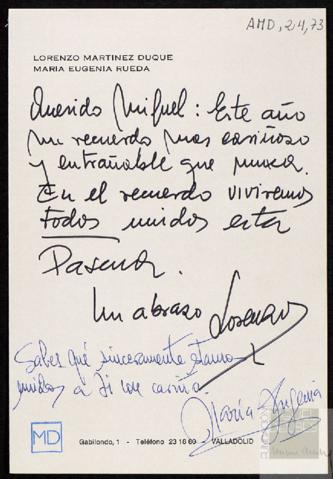 AMD, 24, 73
LORENZO MARTINEZ DUQUE
MARIA EUGENIA RUEDA
Querido Miguel: Este año
mi recuerdo mas cariñoso
y entrañable que nunca.
En el recuerdo viviremos
todos unidos esta
Pascua.
Un abrazo Lorenzo
Sabes que sinceramente estamos
unidos a ti con cariño.
María Eugenia
MD
Gabilondo, 1 - Teléfono 23 16 60 - VALLADOLID